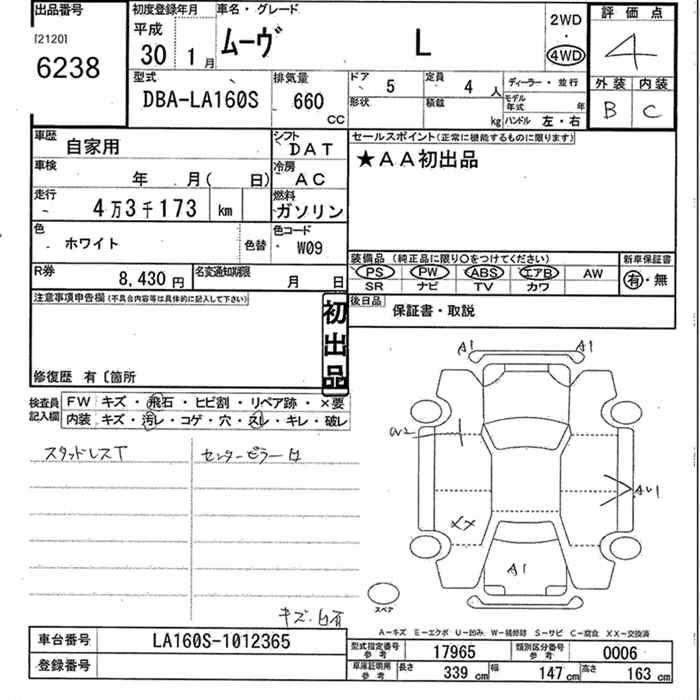 出品番号
[2120]
6238
初度登録年月
平成
30 1月
車名・グレード
ムーヴ L
2WD
・
4WD
評価点
4
外装 内装
B C
型式
DBA-LA160S
排気量
660
CC
ドア 5
定員 4 人
ディーラー・並行
形状
積載 kg
モデル年式 年
ハンドル 左・右
車歴 自家用
シフト DAT
車検 年 月( 日)
冷房 AC
走行 4万3千173 km
燃料 ガソリン
色 ホワイト 色替
色コード W09
R券 8,430円
名変通知期限 月 日
セールスポイント(正常に機能するものに限ります)
★AA初出品
装備品 (純正品に限り○をつけてください)
PS PW ABS エアB AW
SR ナビ TV カワ
新車保証書
有・無
後日品 保証書・取説
注意事項申告欄(不具合内容等は具体的に記入して下さい)
初出品
修復歴 有〔箇所
検査員記入欄
FW キズ・飛石・ヒビ割・リペア跡・×要
内装 キズ・汚レ・コゲ・穴・スレ・キレ・破レ
スタッドレスT
センターピラー
A1 A1
XX
A1
スペア
A-キズ E-エクボ U-凹み W-補修跡 S-サビ C-腐食 XX-交換済
車台番号 LA160S-1012365
登録番号
型式指定番号 参考 17965
類別区分番号 参考 0006
車庫証明用 参考
長さ 339 cm 幅 147 cm 高さ 163 cm